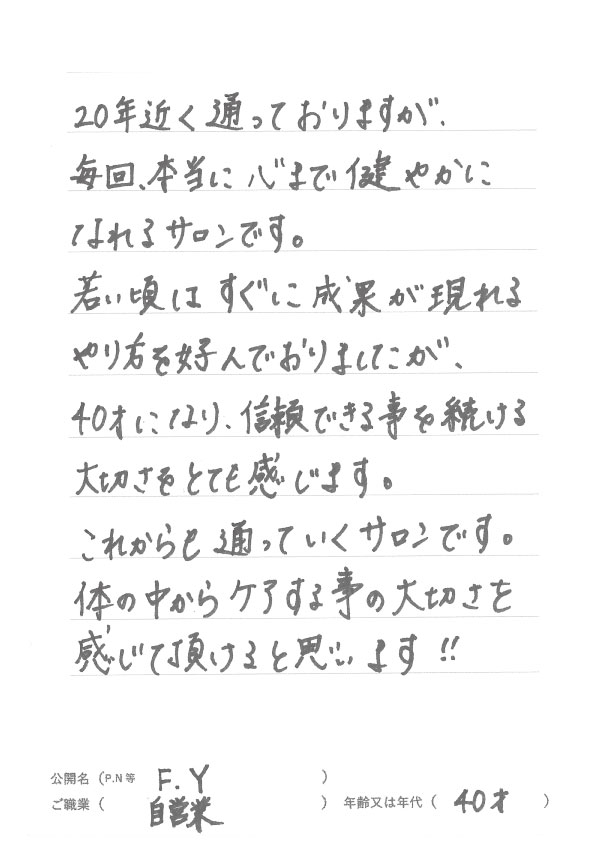 20年近く通っておりますが、
毎回、本当に心まで健やかに
なれるサロンです。
若い頃はすぐに成果が現れる
やり方を好んでおりましたが、
40才になり、信頼できる事を続ける
大切さをとても感じます。
これからも通っていくサロンです。
体の中からケアする事の大切さを
感じて頂けると思います!!
公開名（P.N等 F.Y ）
ご職業（ 自営業 ） 年齢又は年代（ 40才 ）